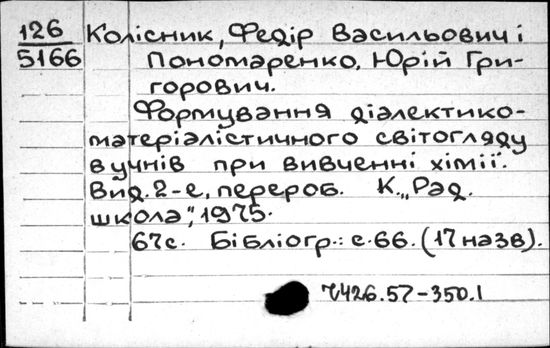 126 Колісник, Федір Васильович і
5166 Пономаренко, Юрій Гри-
горович.
Формування діалектико-
матеріалістичного світогляду
в учнів при вивченні хімії.
Вид. 2-е, перероб. К., „Рад.
школа", 1975.
67с. Бібліогр.: с.66. (17 назв).
Ч426.57-350.1